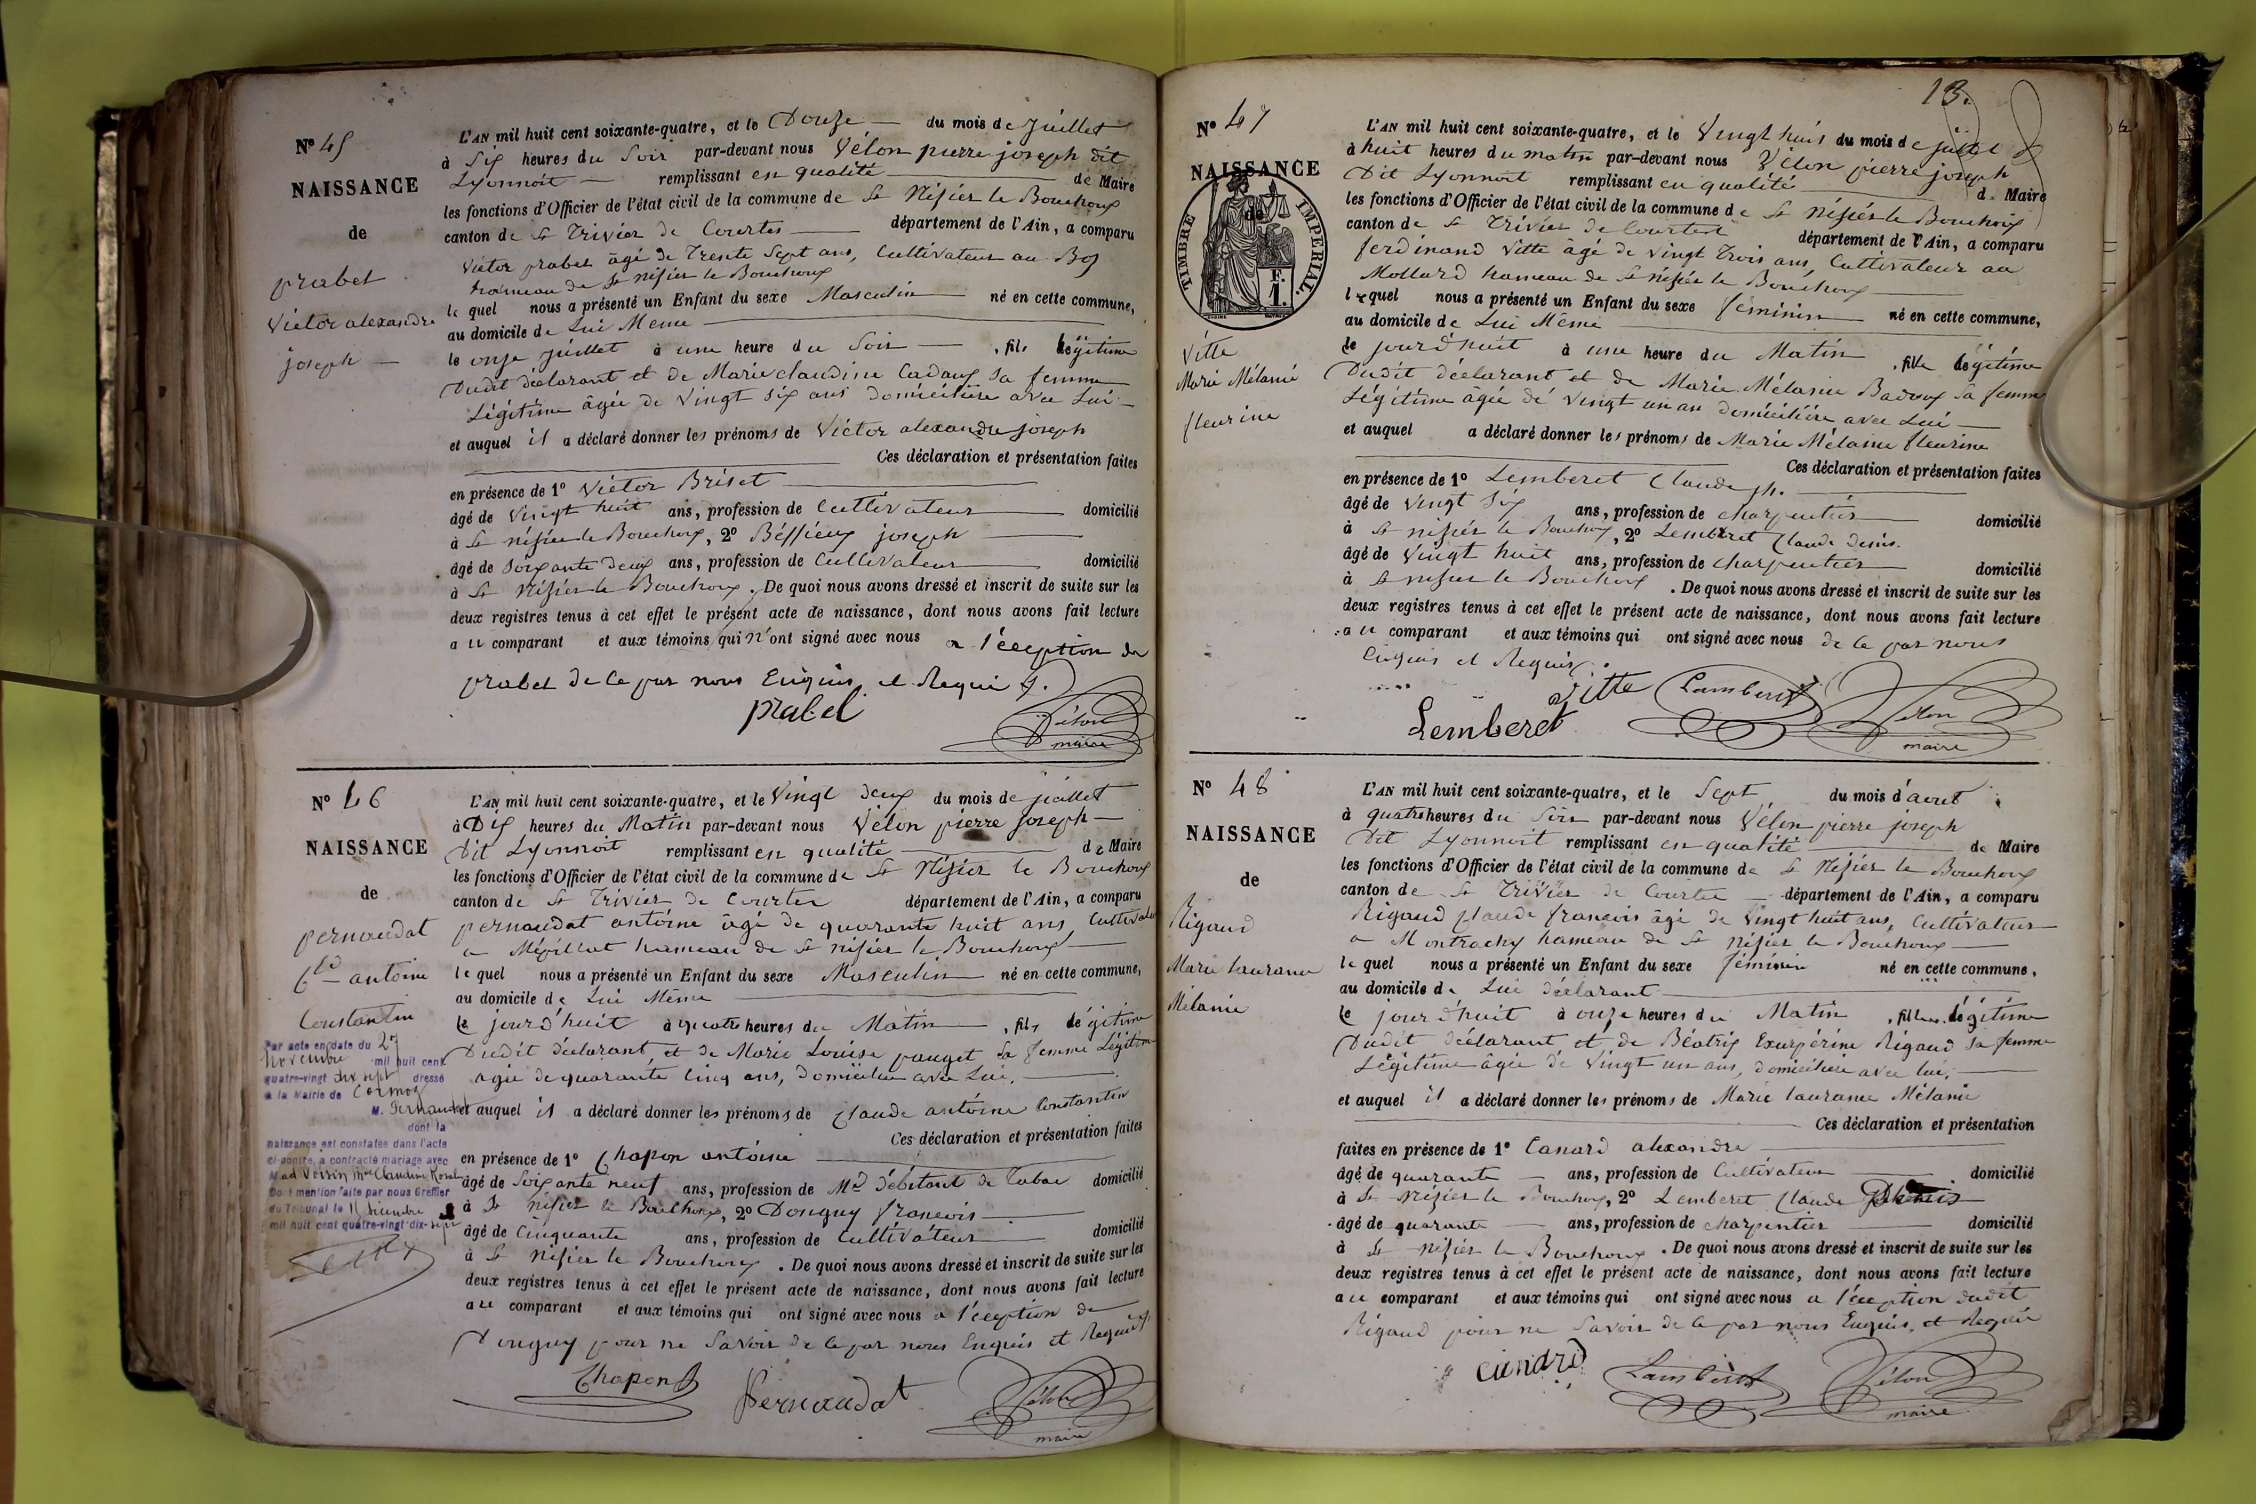 Nº 45
NAISSANCE
de
prabel
Victor alexandre
joseph
L'AN mil huit cent soixante-quatre, et le Douze du mois de juillet
à Six heures du Soir par-devant nous Vélon pierre joseph dit
Lyonnoit remplissant en qualité de Maire
les fonctions d'Officier de l'état civil de la commune de St Nisier le Bouchoux
canton de St Trivier de Courtes département de l'Ain, a comparu
Victor prabel âgé de Trente Sept ans, Cultivateur au
hameau de St nisier le Bouchoux
le quel nous a présenté un Enfant du sexe Masculin né en cette commune,
au domicile de Lui Meme
le onze juillet à une heure du Soir , fils légitime
Dudit déclarant et de Marie claudine Cadoux Sa femme
Légitime âgée de Vingt Six ans domicilière avec Lui
et auquel il a déclaré donner les prénoms de Victor alexandre joseph
Ces déclaration et présentation faites
en présence de 1º Victor Briset
âgé de Vingt huit ans, profession de Cultivateur domicilié
à St nisier le Bouchoux, 2º Béssieux joseph
âgé de Soixante deux ans, profession de Cultivateur domicilié
à St Nisier le Bouchoux. De quoi nous avons dressé et inscrit de suite sur les
deux registres tenus à cet effet le présent acte de naissance, dont nous avons fait lecture
au comparant et aux témoins qui n'ont signé avec nous a l'éception de
prabel de ce par nous Enquis et Requis.
prabel
Vélon
maire
Nº 46
NAISSANCE
de
pernaudat
Cde antoine
Constantin
Par acte en date du 27
Novembre mil huit cent
quatre-vingt dix sept dressé
à la Mairie de Cormoz
M. Pernaudat
dont la
naissance est constatée dans l'acte
ci-contre, a contracté mariage avec
Mad Voisin Mie Claudine
Dont mention faite par nous Greffier
du Tribunal le 11 Décembre
mil huit cent quatre-vingt dix-sept
L'AN mil huit cent soixante-quatre, et le Vingt deux du mois de juillet
à Dix heures du Matin par-devant nous Vélon pierre joseph
Dit Lyonnoit remplissant en qualité de Maire
les fonctions d'Officier de l'état civil de la commune de St Nisier le Bouchoux
canton de St Trivier de Courtes département de l'Ain, a comparu
pernaudat antoine âgé de quarante huit ans, Cultivateur
a Mézillat hameau de St nisier le Bouchoux
le quel nous a présenté un Enfant du sexe Masculin né en cette commune,
au domicile de Lui Même
le jourd'huit à quatre heures du Matin , fils légitime
Dudit déclarant, et de Marie Louise pauget Sa femme Légitime
agée de quarante Cinq ans, domicilier avec Lui,
et auquel il a déclaré donner les prénoms de Claude antoine Constantin
Ces déclaration et présentation faites
en présence de 1º Chapon antoine
âgé de Soixante neuf ans, profession de Md débitant de Tabac domicilié
à St Nisier le Bouchoux, 2º Donguy francois
âgé de Cinquante ans, profession de Cultivateur domicilié
à St Nisier le Bouchoux. De quoi nous avons dressé et inscrit de suite sur les
deux registres tenus à cet effet le présent acte de naissance, dont nous avons fait lecture
au comparant et aux témoins qui ont signé avec nous a l'éception de
Donguy pour ne Savoir de ce par nous Enquis et Requis
Chapon
Pernaudat
Vélon
maire
13.
Nº 47
NAISSANCE
de
TIMBRE IMPERIAL.
F.
1.
Vitte
Marie Mélanie
fleurine
L'AN mil huit cent soixante-quatre, et le Vingt huit du mois de juillet
à huit heures du matin par-devant nous Vélon pierre joseph
Dit Lyonnoit remplissant en qualité de Maire
les fonctions d'Officier de l'état civil de la commune de St Nisier le Bouchoux
canton de St Trivier de Courtes département de l'Ain, a comparu
ferdinand Vitte âgé de Vingt Trois ans, Cultivateur au
Mollard hameau de St Nisier le Bouchoux
lequel nous a présenté un Enfant du sexe féminin né en cette commune,
au domicile de Lui Même
le jourd'huit à une heure du Matin , fille légitime
Dudit déclarant et de Marie Mélanie Badoux Sa femme
Légitime âgée de Vingt un an domicilière avec Lui
et auquel a déclaré donner les prénoms de Marie Mélanie fleurine
Ces déclaration et présentation faites
en présence de 1º Lemberet Claude ph.
âgé de Vingt Six ans, profession de charpentier domicilié
à St nisier le Bouchoux, 2º Lemberet Claude denis.
âgé de Vingt huit ans, profession de charpentier domicilié
à St nisier le Bouchoux. De quoi nous avons dressé et inscrit de suite sur les
deux registres tenus à cet effet le présent acte de naissance, dont nous avons fait lecture
au comparant et aux témoins qui ont signé avec nous de ce par nous
Enquis et Requis.
Vitte
Lamberet
Lemberet
Vélon
maire
Nº 48
NAISSANCE
de
Rigaud
Marie laurance
Mélanie
L'AN mil huit cent soixante-quatre, et le Sept du mois d'aout
à quatre heures du Soir par-devant nous Vélon pierre joseph
Dit Lyonnoit remplissant en qualité de Maire
les fonctions d'Officier de l'état civil de la commune de St Nisier le Bouchoux
canton de St Trivier de Courtes département de l'Ain, a comparu
Rigaud Claude francois âgé de Vingt huit ans, Cultivateur
a Montrachy hameau de St nisier le Bouchoux
le quel nous a présenté un Enfant du sexe féminin né en cette commune,
au domicile de Lui déclarant
le jourd'huit à onze heures du Matin , fille légitime
Dudit déclarant et de Béatrix Exurpérine Rigaud Sa femme
Légitime âgée de Vingt un ans, domicilière avec lui,
et auquel il a déclaré donner les prénoms de Marie laurance Mélanie
Ces déclaration et présentation
faites en présence de 1º Canard alexandre
âgé de quarante ans, profession de Cultivateur domicilié
à St Nisier le Bouchoux, 2º Lemberet Claude Denis
âgé de quarante ans, profession de charpentier domicilié
à St Nisier le Bouchoux. De quoi nous avons dressé et inscrit de suite sur les
deux registres tenus à cet effet le présent acte de naissance, dont nous avons fait lecture
au comparant et aux témoins qui ont signé avec nous a l'éception dudit
Rigaud pour ne Savoir de ce par nous Enquis, et Requis
Lamberet
Vélon
maire